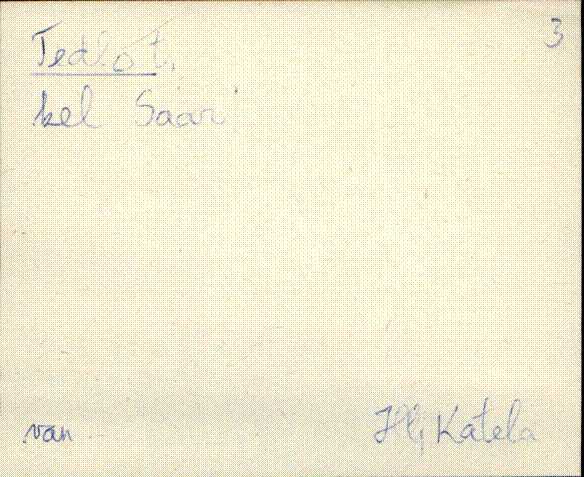 3
Tedlot,
kel Saar
van
Hl, Katela